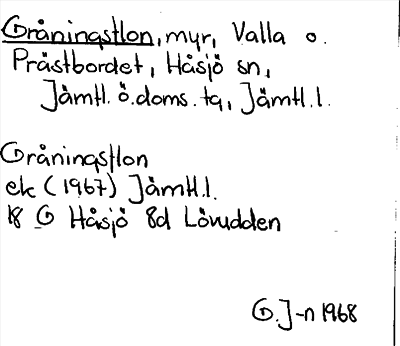 Gråningstlon, myr, Valla o.
Prästbordet, Håsjö sn,
Jämtl. ö. doms. tg, Jämtl. l.
Gråningstlon
ek (1967) Jämtl. l.
18 G Håsjö 8d Lövudden
G. J-n 1968